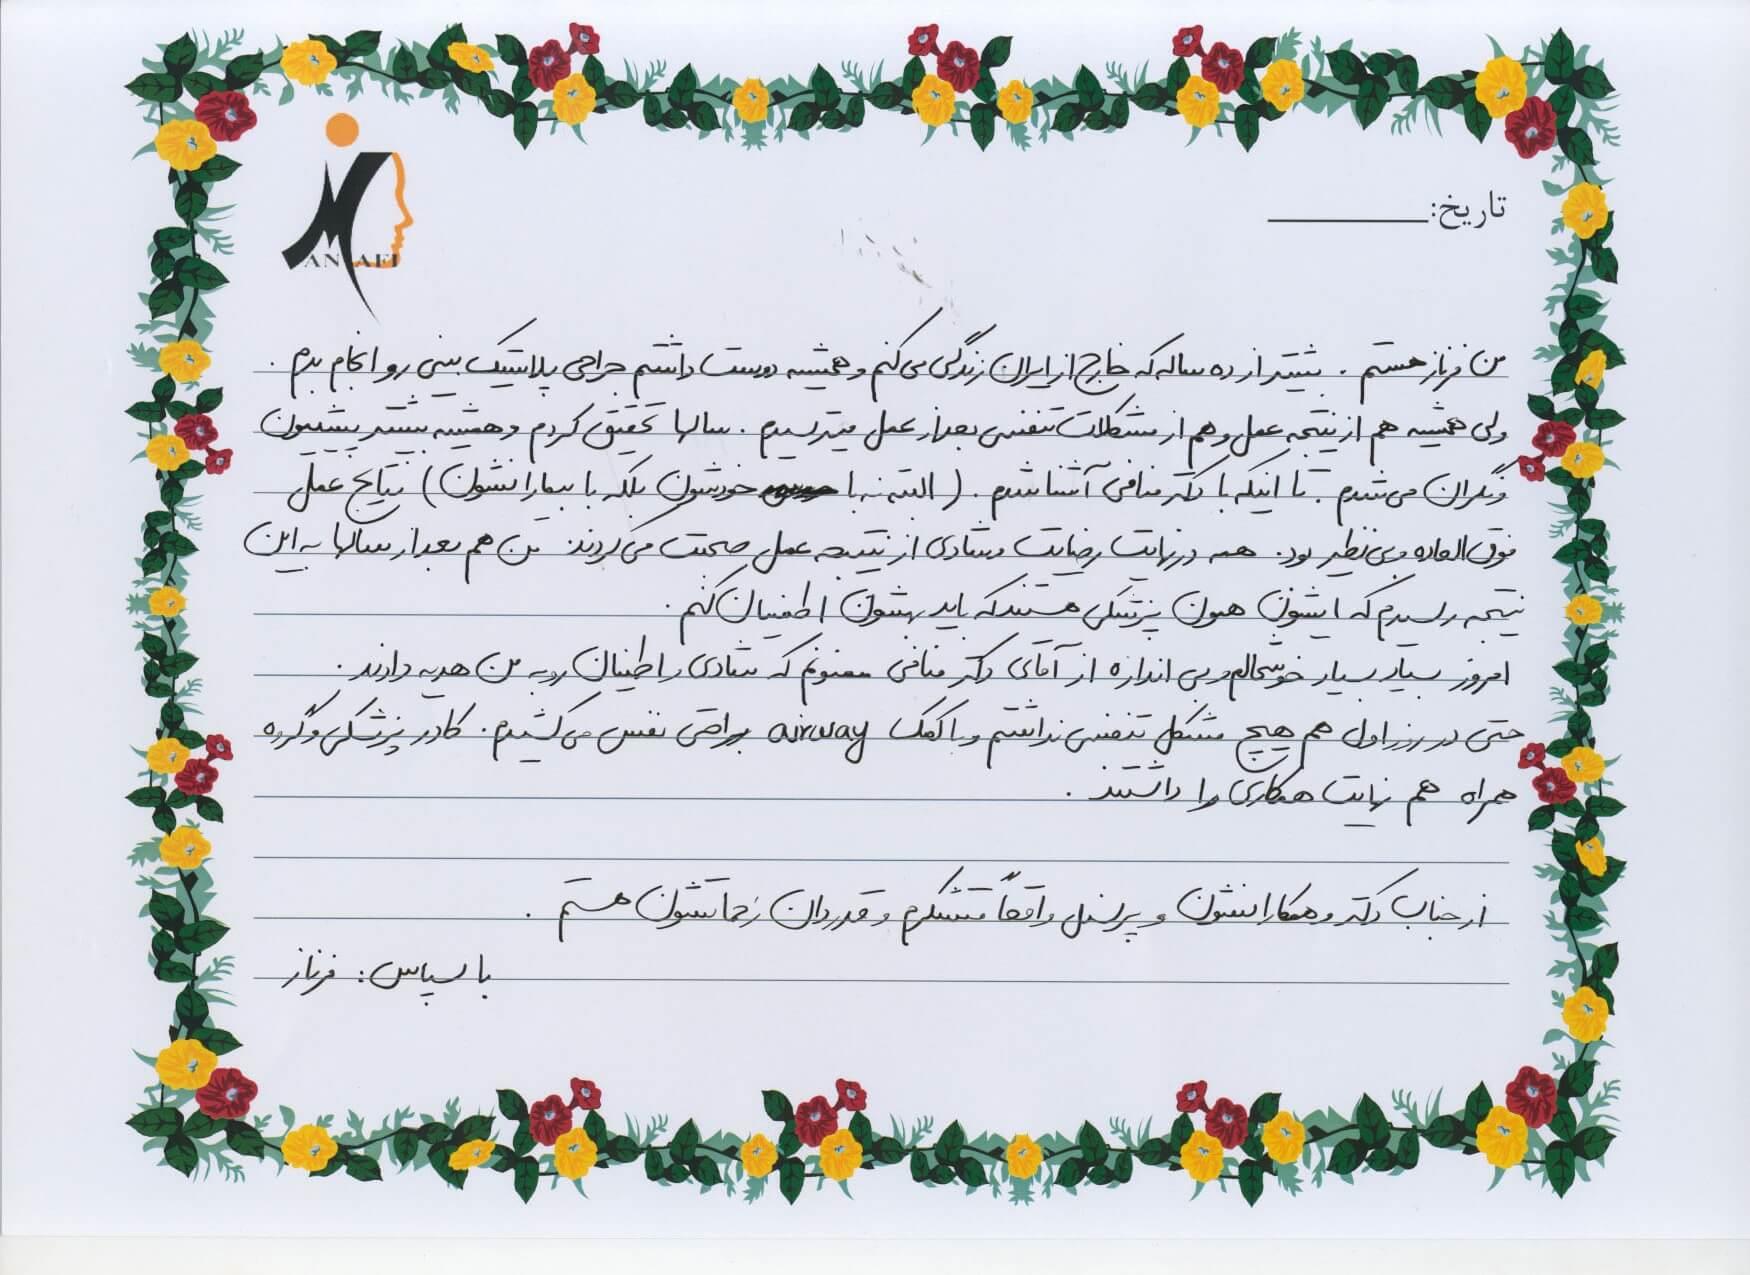 MANAFI
تاریخ:
من فرناز هستم . بیشتر از ده ساله که خارج از ایران زندگی می کنم و همیشه دوست داشتم جراحی پلاستیک بینی رو انجام بدم .
ولی همیشه هم از نتیجه عمل و هم از مشکلات تنفسی بعد از عمل میترسیدم . سالها تحقیق کردم و همیشه بیشتر پشیمون
و نگران می شدم . تا اینکه با دکتر منافی آشنا شدم . ( البته نه با خودشون بلکه با بیمارانشون ) نتایج عمل
فوق العاده و بی نظیر بود . همه در نهایت رضایت و شادی از نتیجه عمل صحبت می کردند من هم بعد از سالها به این
نتیجه رسیدم که ایشون همون پزشکی هستند که باید بهشون اطمینان کنم .
امروز بسیار بسیار خوشحالم و بی اندازه از آقای دکتر منافی ممنونم که شادی و اطینان رو به من هدیه دادند .
حتی در روز اول هم هیچ مشکل تنفسی نداشتم و با کمک airway براحتی نفس می کشیدم . کادر پزشکی و گروه
همراه هم نهایت همکاری را داشتند .
از جناب دکتر و همکارانشون و پرسنل واقعاً متشکرم و قدردان زحماتشون هستم .
با سپاس : فرناز